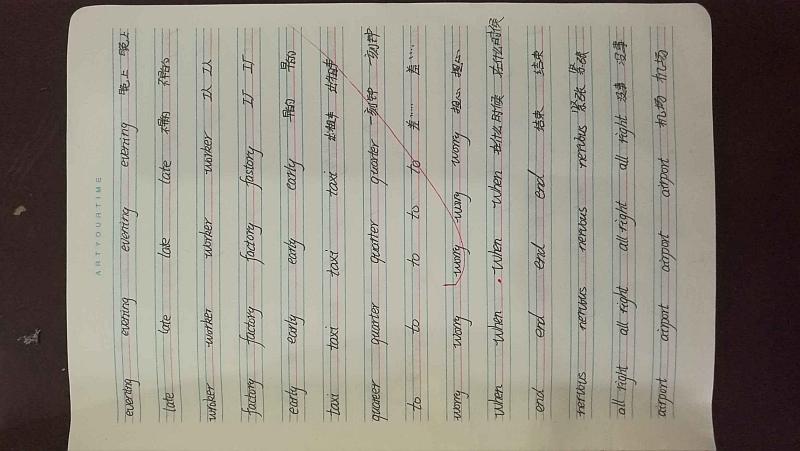 ARTYOURTIME
evening evening evening evening 晚上 晚上
late late late late
worker worker worker worker 工人 工人
factory factory factory fastory 工厂 工厂
early early early early 早的 早的
taxi taxi taxi taxi 出租车 出租车
quareer quarter quorter quarter 一刻钟 一刻钟
to to to to 差…… 差……
worry worry worry wory worry 担心 担心
When When When When 在什么时候 在什么时候
end end end end 结束 结束
nervous nervous nervous nervous 紧张 紧张
all right all right all right all right 没事 没事
airport airport airport airport 机场 机场